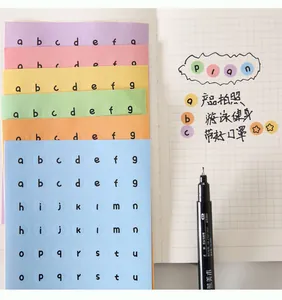 a b c d e f g
a b c d e f g
a b c d e f g
a b c d e f g
a b c d e f g
a b c d e f g
a b c d e f g
h i j k l m n
h i j k l m n
o p q r s t u
plan
a 产品拍照
b 游泳健身
c 带好口罩